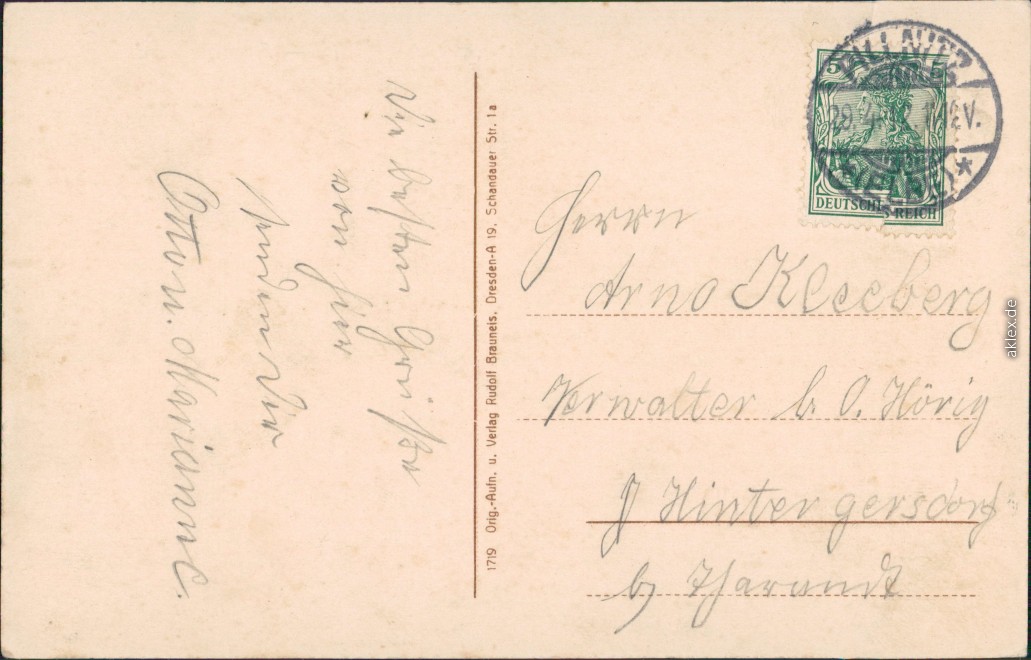 Die besten Grüße
von hier
senden Dir
Otto u. Marianne.
1719 Orig.-Aufn. u. Verlag Rudolf Brauneis, Dresden-A 19, Schandauer Str. 1a
PILLNITZ
5
DEUTSCHES REICH
Herrn
Arno Kleeberg
Verwalter b. O. Hörig
Hintergersdorf
b/ Tharandt
aklex.de